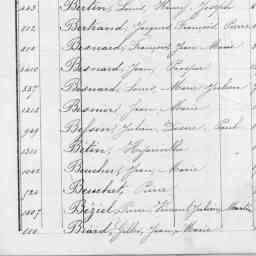 Bertin, Louis, Henry, Joseph
812 Bertrand, Jacques François Pierre
210 Besnard, François, Jean Marie
1410 Besnard, Jean, Prosper
537 Besnard, Louis, Marie Julien
1212 Besnier, Jean Marie
949 Besson, Julien, Désiré, Paul
1311 Bétin, Hyacinthe
1002 Boucher, Jean, Marie
520 Bouchet, Pierre
1407 Béziel, Pierre, Vincent, Julien, Martin
Biard, Gilles, Jean, Marie